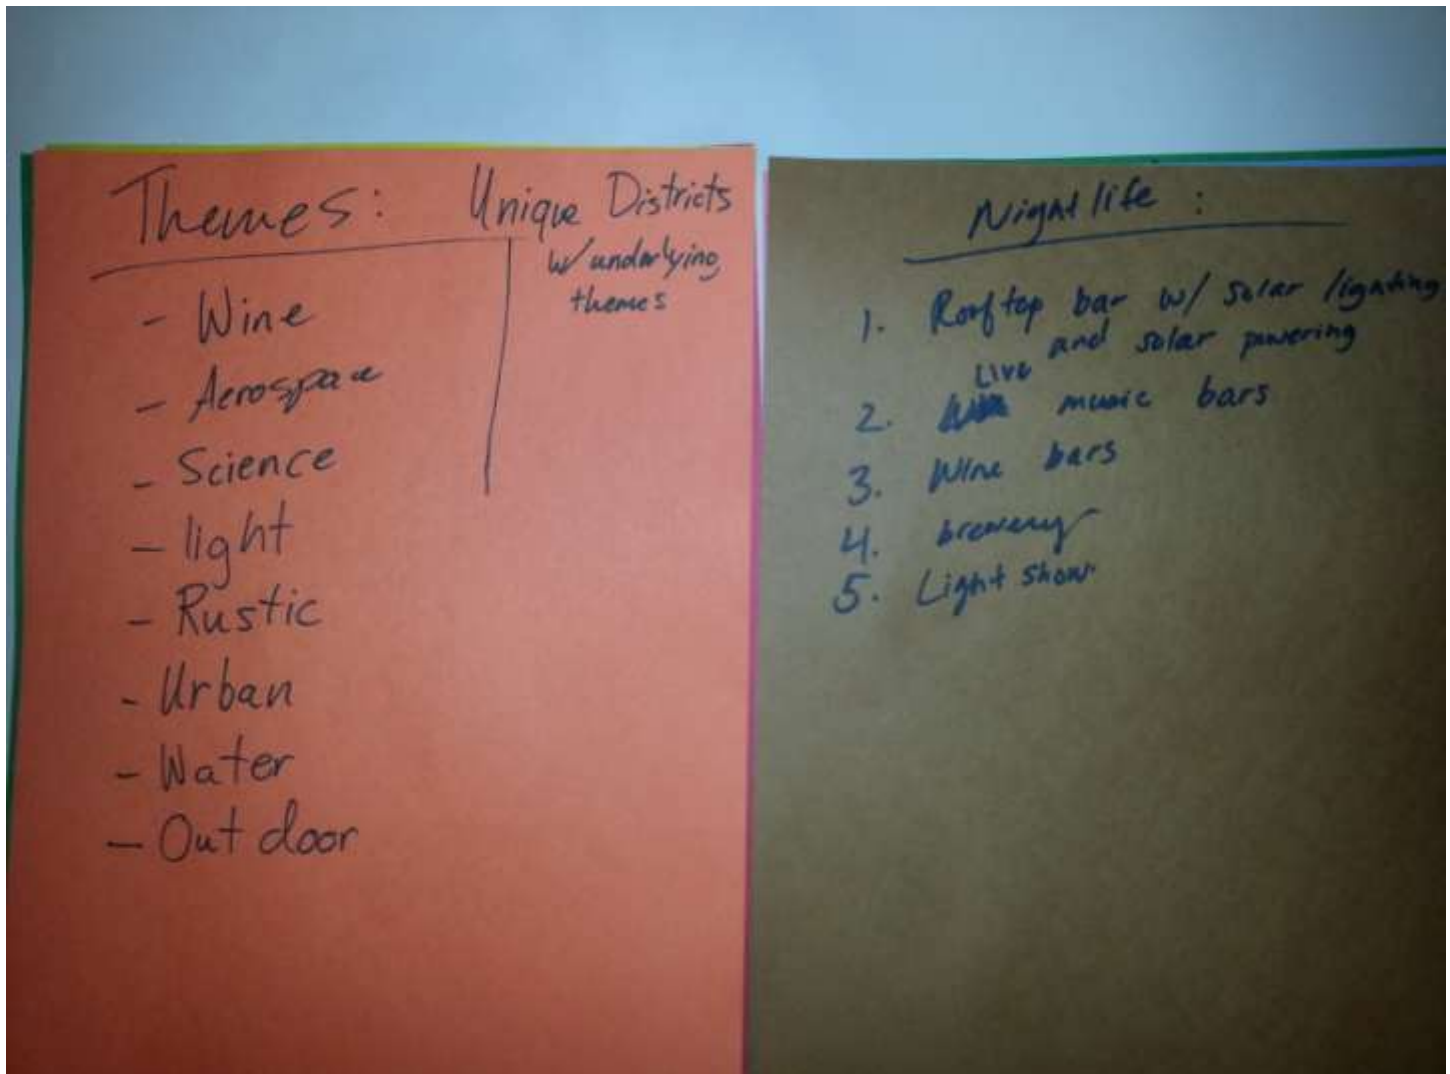 Themes: Unique Districts
w/ underlying
themes
- Wine
- Aerospace
- Science
- light
- Rustic
- Urban
- Water
- Outdoor
Nightlife :
1. Rooftop bar w/ solar lighting
and solar powering
2. Live music bars
3. Wine bars
4. brewery
5. Light show